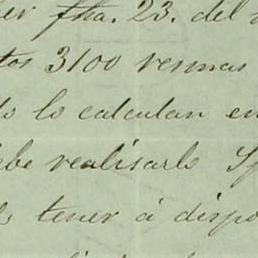 fha. 23. del
tos 3100 resmas
lo calculan en
be realisarlo
tener á dispo